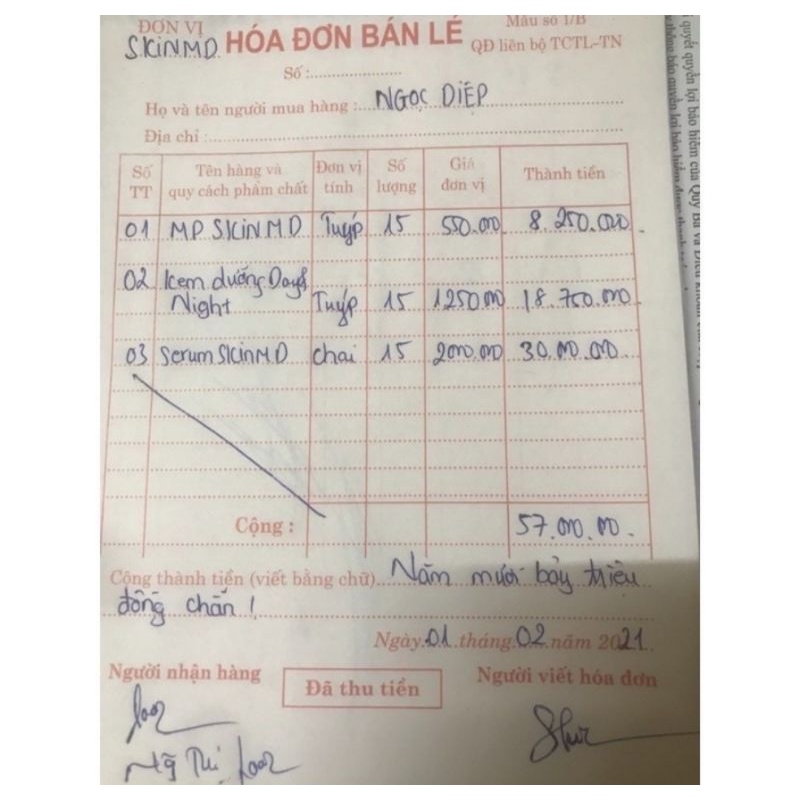 ĐƠN VỊ
SKINMD HÓA ĐƠN BÁN LẺ
Mẫu số 1/B
QĐ liên bộ TCTL-TN
Số :
Họ và tên người mua hàng : NGỌC DIỆP
Địa chỉ :
Số TT Tên hàng và quy cách phẩm chất Đơn vị tính Số lượng Giá đơn vị Thành tiền
01 MP SKINMD Tuýp 15 550.000 8.250.000
02 Kem dưỡng Day&
Night Tuýp 15 1250.000 18.750.000
03 Serum SKINMD chai 15 2000.000 30.000.000
Cộng : 57.000.000
Cộng thành tiền (viết bằng chữ) Năm mươi bảy triệu
đồng chẵn !
Ngày 01 tháng 02 năm 2021
Người nhận hàng Đã thu tiền Người viết hóa đơn
Loan
Ng Thị Loan